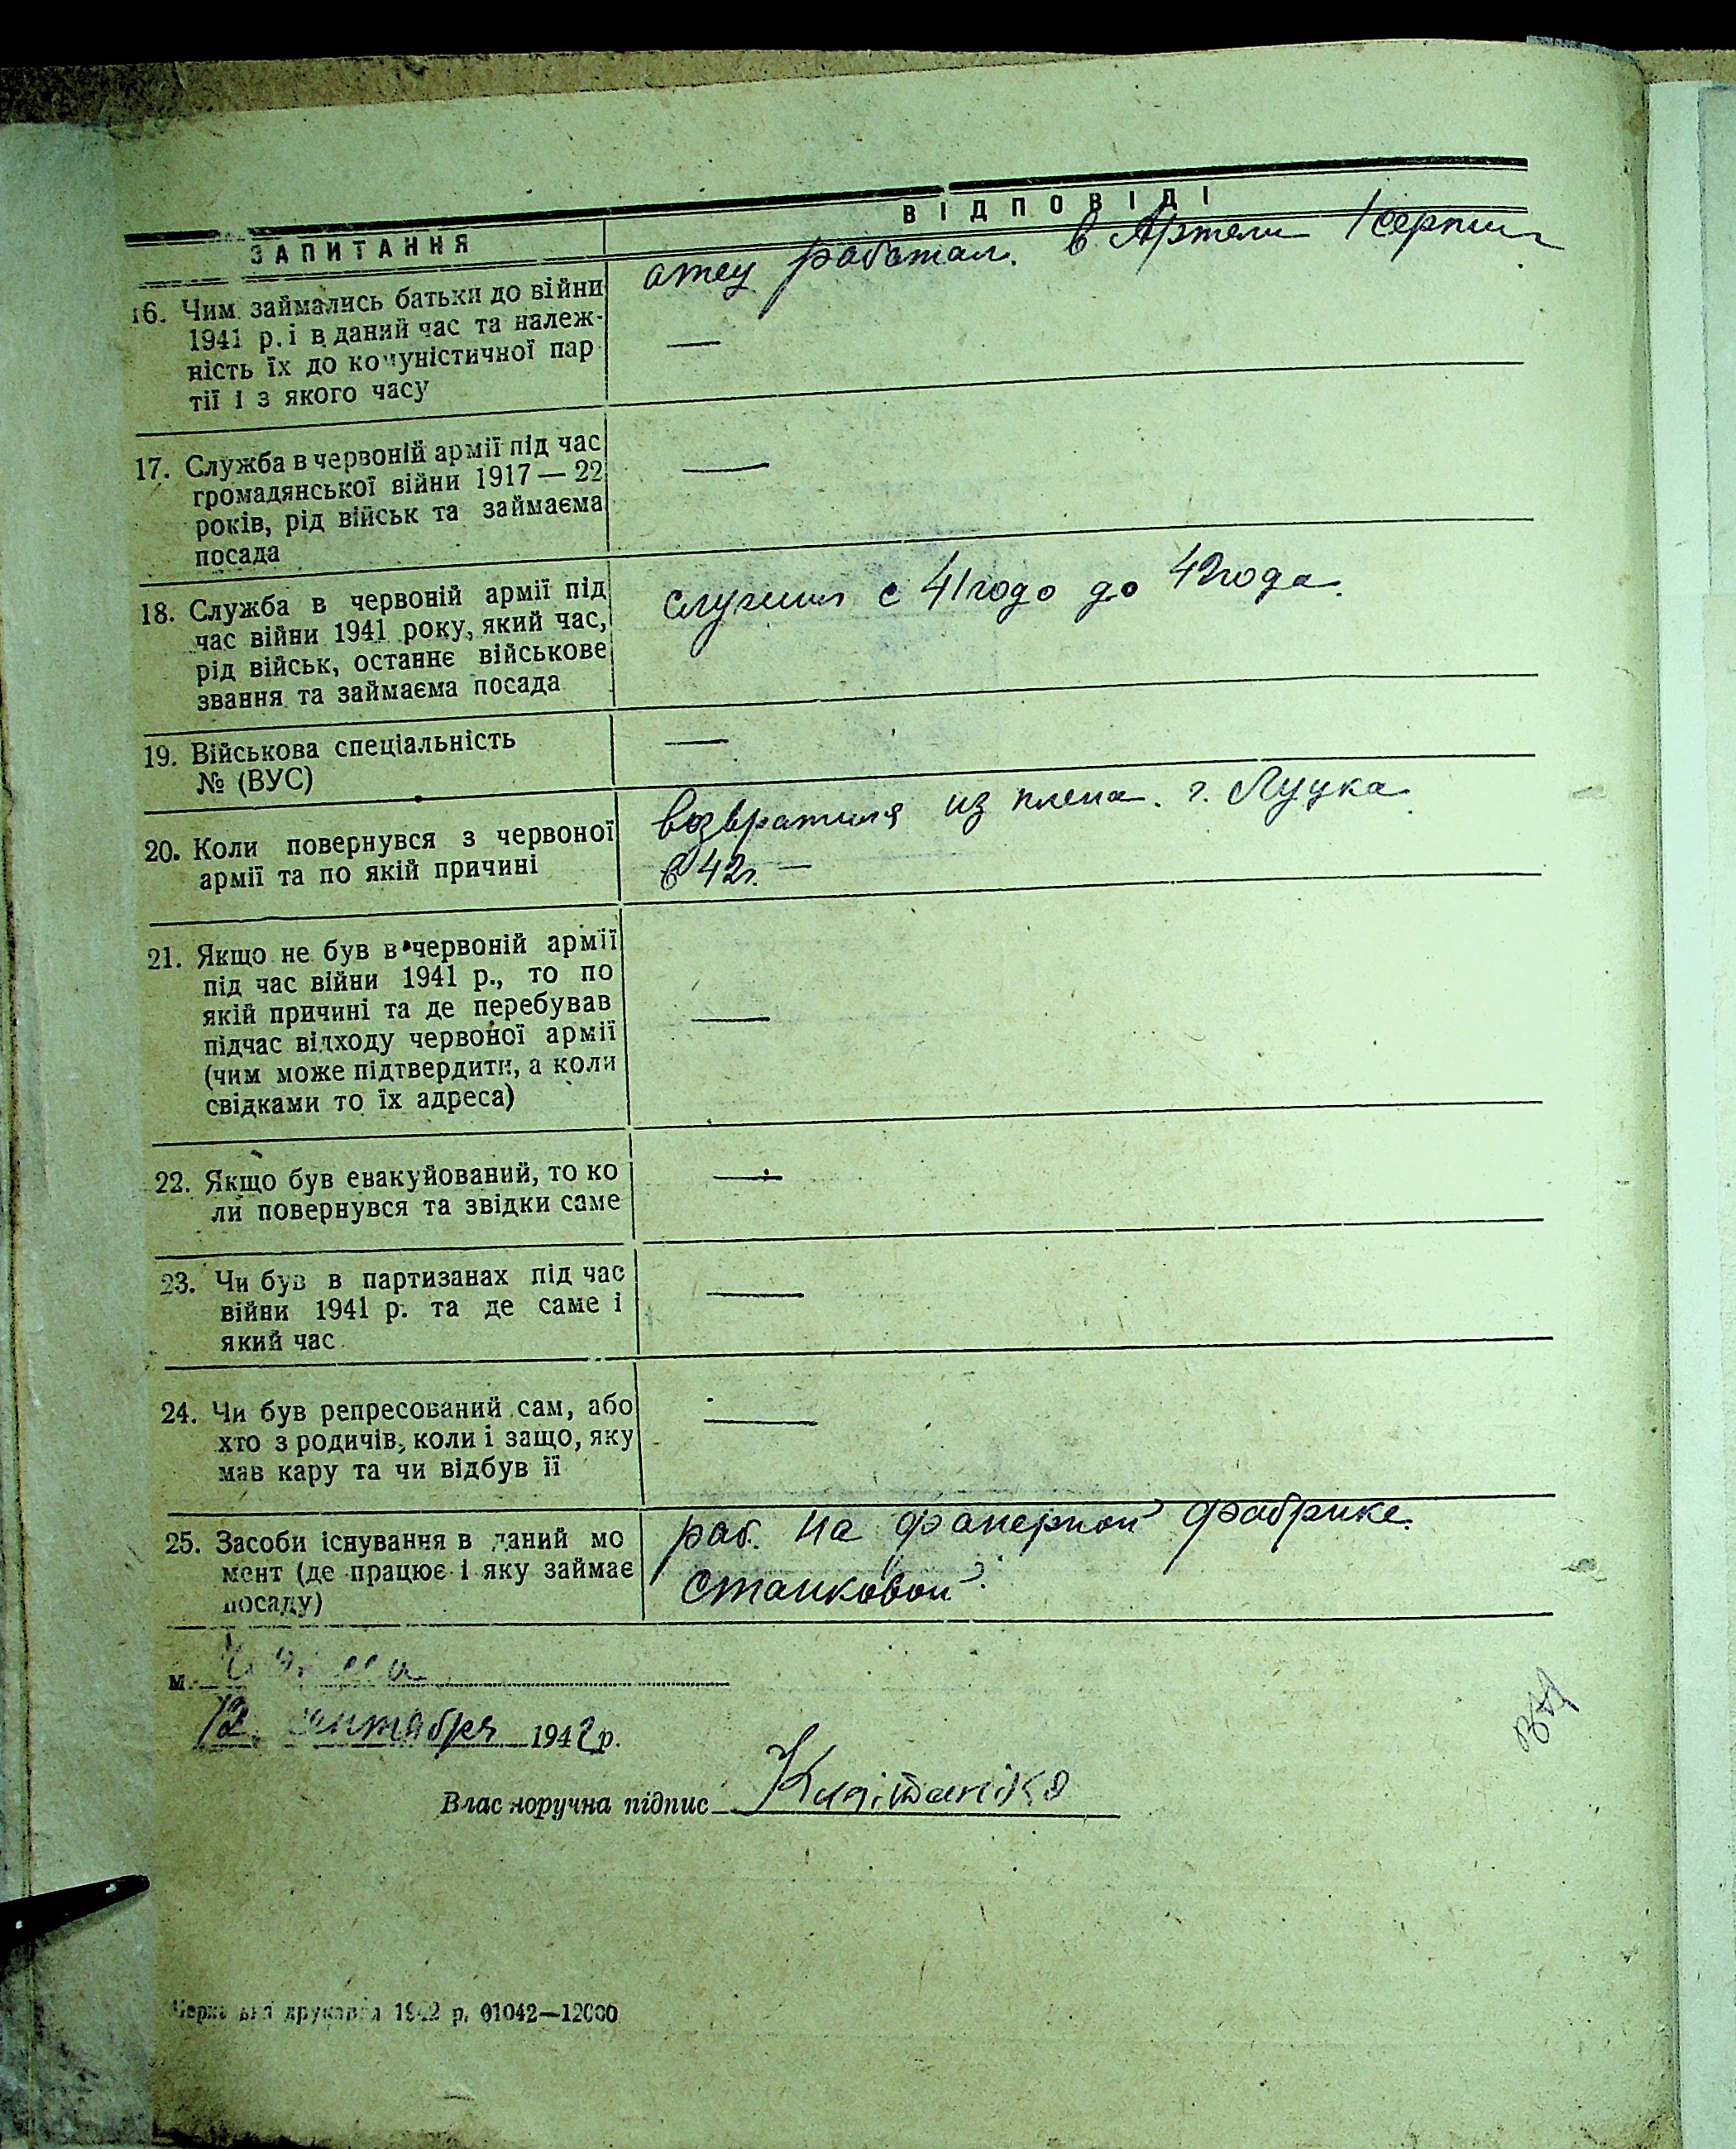 ЗАПИТАННЯ
ВІДПОВІДІ
16. Чим займались батьки до війни
1941 р. і в даний час та належ-
ність їх до комуністичної пар
тії і з якого часу
отец работал. в Артели 1 серпня
—
17. Служба в червоній армії під час
громадянської війни 1917 — 22
років, рід військ та займаєма
посада
—
18. Служба в червоній армії під
час війни 1941 року, який час,
рід військ, останнє військове
звання та займаєма посада
служил с 41 годо до 42 года.
19. Військова спеціальність
№ (ВУС)
—
20. Коли повернувся з червоної
армії та по якій причині
возвратился из плена. г. Луцка
в 42 г. —
21. Якщо не був в червоній армії
під час війни 1941 р., то по
якій причині та де перебував
підчас відходу червоної армії
(чим може підтвердити, а коли
свідками то їх адреса)
—
22. Якщо був евакуйований, то ко
ли повернувся та звідки саме
—
23. Чи був в партизанах під час
війни 1941 р. та де саме і
який час
—
24. Чи був репресований сам, або
хто з родичів, коли і защо, яку
мав кару та чи відбув її
—
25. Засоби існування в даний мо
мент (де працює і яку займає
посаду)
раб. на фанерной фабрике.
станковой.
м.
12 сентября 1942 р.
Власноручна підпис
друкарня 1942 р. 01042—12000